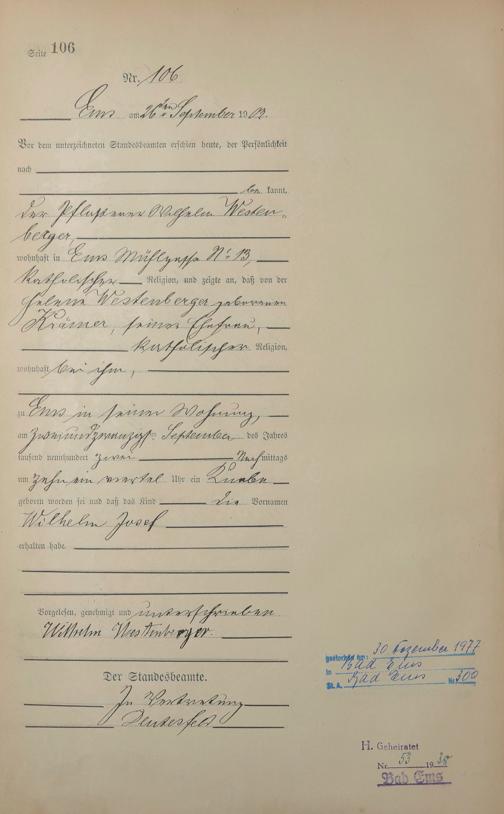 Seite 106
Nr. 106
Ems am 26ten September 1902.
Vor dem unterzeichneten Standesbeamten erschien heute, der Persönlichkeit
nach
be kannt,
der Pflasterer Wilhelm Westen-
berger,
wohnhaft in Ems Mühlgasse No 13,
katholischer Religion, und zeigte an, daß von der
Helene Westenberger geborenen
Krämer, seiner Ehefrau,
katholischer Religion,
wohnhaft bei ihm,
zu Ems in seiner Wohnung,
am zweiundzwanzigsten September des Jahres
tausend neunhundert zwei Nachmittags
um zehn ein viertel Uhr ein Knabe
geboren worden sei und daß das Kind die Vornamen
Wilhelm Josef
erhalten habe.
Vorgelesen, genehmigt und unterschrieben
Wilhelm Westenberger.
Der Standesbeamte.
In Vertretung
gestorben am: 30 Dezember 1977
in Bad Ems
St. A. Bad Ems Nr. 300
H. Geheiratet
Nr. 53 19 38
Bad Ems